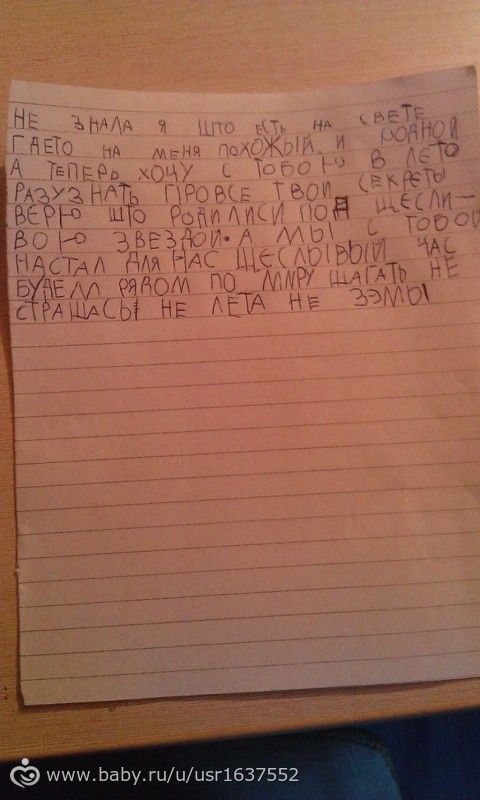 НЕ ЗНАЛА Я ШТО ЕСТЬ НА СВЕТЕ
ГДЕТО НА МЕНЯ ПОХОЖЫЙ И РОДНОЙ
А ТЕПЕРЬ ХОЧУ С ТОБОЮ В ЛЕТО
РАЗУЗНАТЬ ПРОВСЕ ТВОИ СЕКРЕТЫ
ВЕРЮ ШТО РОДИЛИСИ ПОД ЩЕСЛИ—
ВОЮ ЗВЕЗДОЙ. А МЫ С ТОБОЙ
НАСТАЛ ДЛЯ НАС ЩЕСЛЫВЫЙ ЧАС
БУДЕМ РЯДОМ ПО МИРУ ШАГАТЬ НЕ
СТРАШАСЫ НЕ ЛЕТА НЕ ЗЭМЫ
www.baby.ru/u/usr1637552